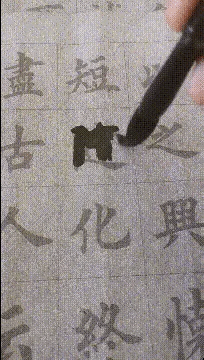 之興懷
短化終
盡古人云